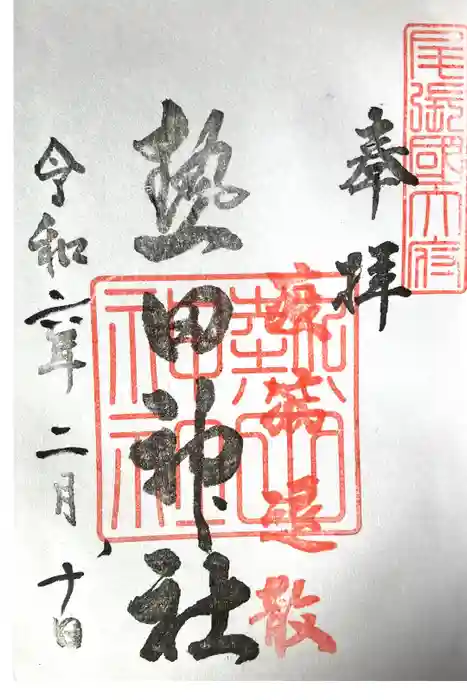 尾張國大府
奉拝
疫病退散
熱田神社
熱田
神社
令和年二月十日